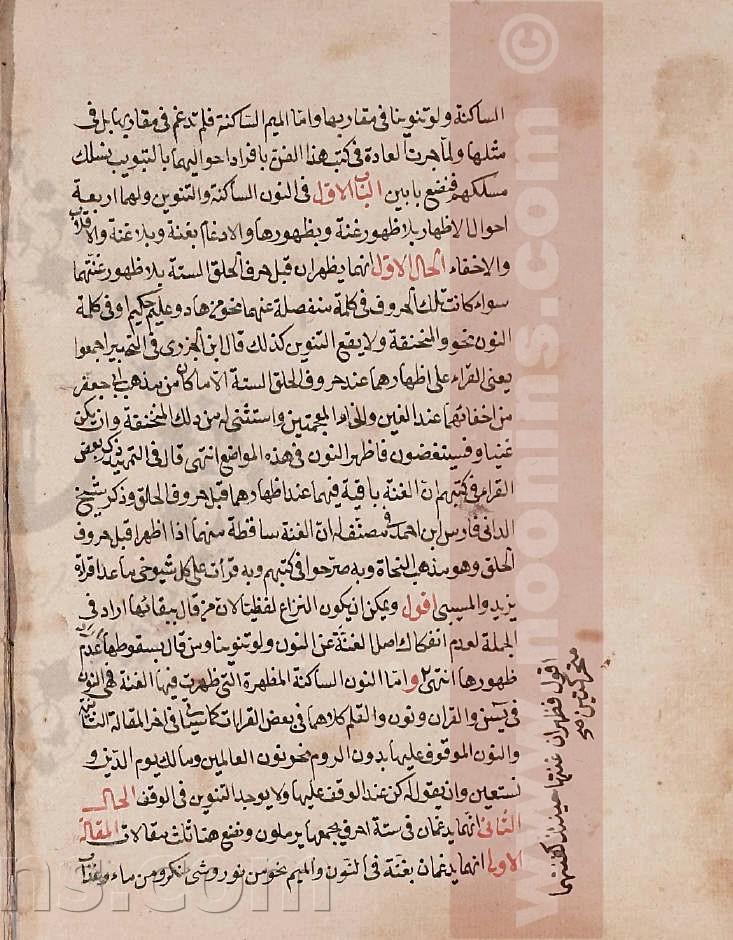 الساكنة ولو تنوينا في مقاربها واما الميم الساكنة فلم تدغم في مقاربها بل في
مثلها ولما جرت العادة في كتب هذا الفن بافراد احوالهما بالتبويب نسلك
مسلكهم فنضع بابين الباب الاول في النون الساكنة والتنوين ولهما اربعة
احوال الاظهار بلا ظهور غنة وبظهورها والادغام بغنة وبلا غنة والاقلاب
والاخفاء الحال الاول انهما يظهران قبل حرف الحلق الستة بلا ظهور غنتهما
سواء كانت تلك الحروف في كلمة منفصلة عنهما نحو من هاد وعليم حكيم او في كلمة
النون نحو والمنخنقة ولا يقع التنوين كذلك قال ابن الجزري في التحبير اجمعوا
يعني القراء على اظهارهما عند حروف الحلق الستة الا ما كان من مذهب ابي جعفر
من اخفائهما عند الغين والخاء المعجمتين واستثنى له من ذلك المنخنقة وان يكن
غنيا وفسينغضون فاظهر النون في هذه المواضع انتهى قال في التمهيد ذكر بعض
القراء في كتبهم ان الغنة باقية فيهما عند اظهارهما قبل حروف الحلق وذكر شيخ
الداني فارس ابن احمد في مصنف له ان الغنة ساقطة منهما اذا اظهرا قبل حروف
الحلق وهو مذهب النحاة وبه صرحوا في كتبهم وبه قرأت على كل شيوخي ما عدا قراة
يزيد والمسيبي اقول ويمكن ان يكون النزاع لفظيا لان من قال ببقائها اراد في
الجملة لعدم انفكاك اصل الغنة عن النون ولو تنوينا ومن قال بسقوطها اراد عدم
ظهورها انتهى واما النون الساكنة المظهرة التي ظهرت فيها الغنة فهي النون
في يس والقران ونون والقلم كلاهما في بعض القراات كما سيأتي في اخر المقالة الثانية
والنون الموقوف عليها بدون الروم نحو نون العالمين ومالك يوم الدين و
نستعين وان يقول له كن عند الوقف عليها ولا يوجد التنوين في الوقف الحال
الثاني انهما يدغمان في ستة احرف يجمعها يرملون ونضع هنا ثلث مقالات المقالة
الاولى انهما يدغمان بغنة في النون والميم نحو من نور وشئ نكر ومن ماء وعذاب
اقول فظهران غنتها حينئذ كغنتهما
متحركتين منه
www.noonins.com ©
ns.com